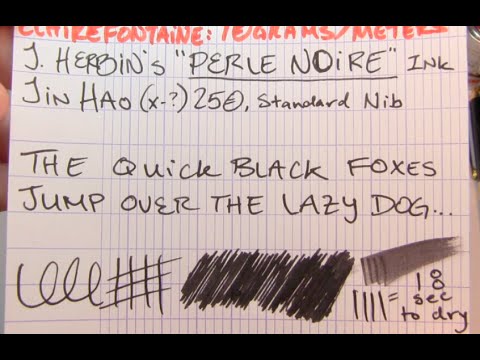 CLAIREFONTAINE: 1 GRAMS/METERS
J. HERBIN'S "PERLE NOIRE" INK
JIN HAO (X-?) 250, Standard Nib
THE QUICK BLACK FOXES
JUMP OVER THE LAZY DOG...
= 18
sec
to dry